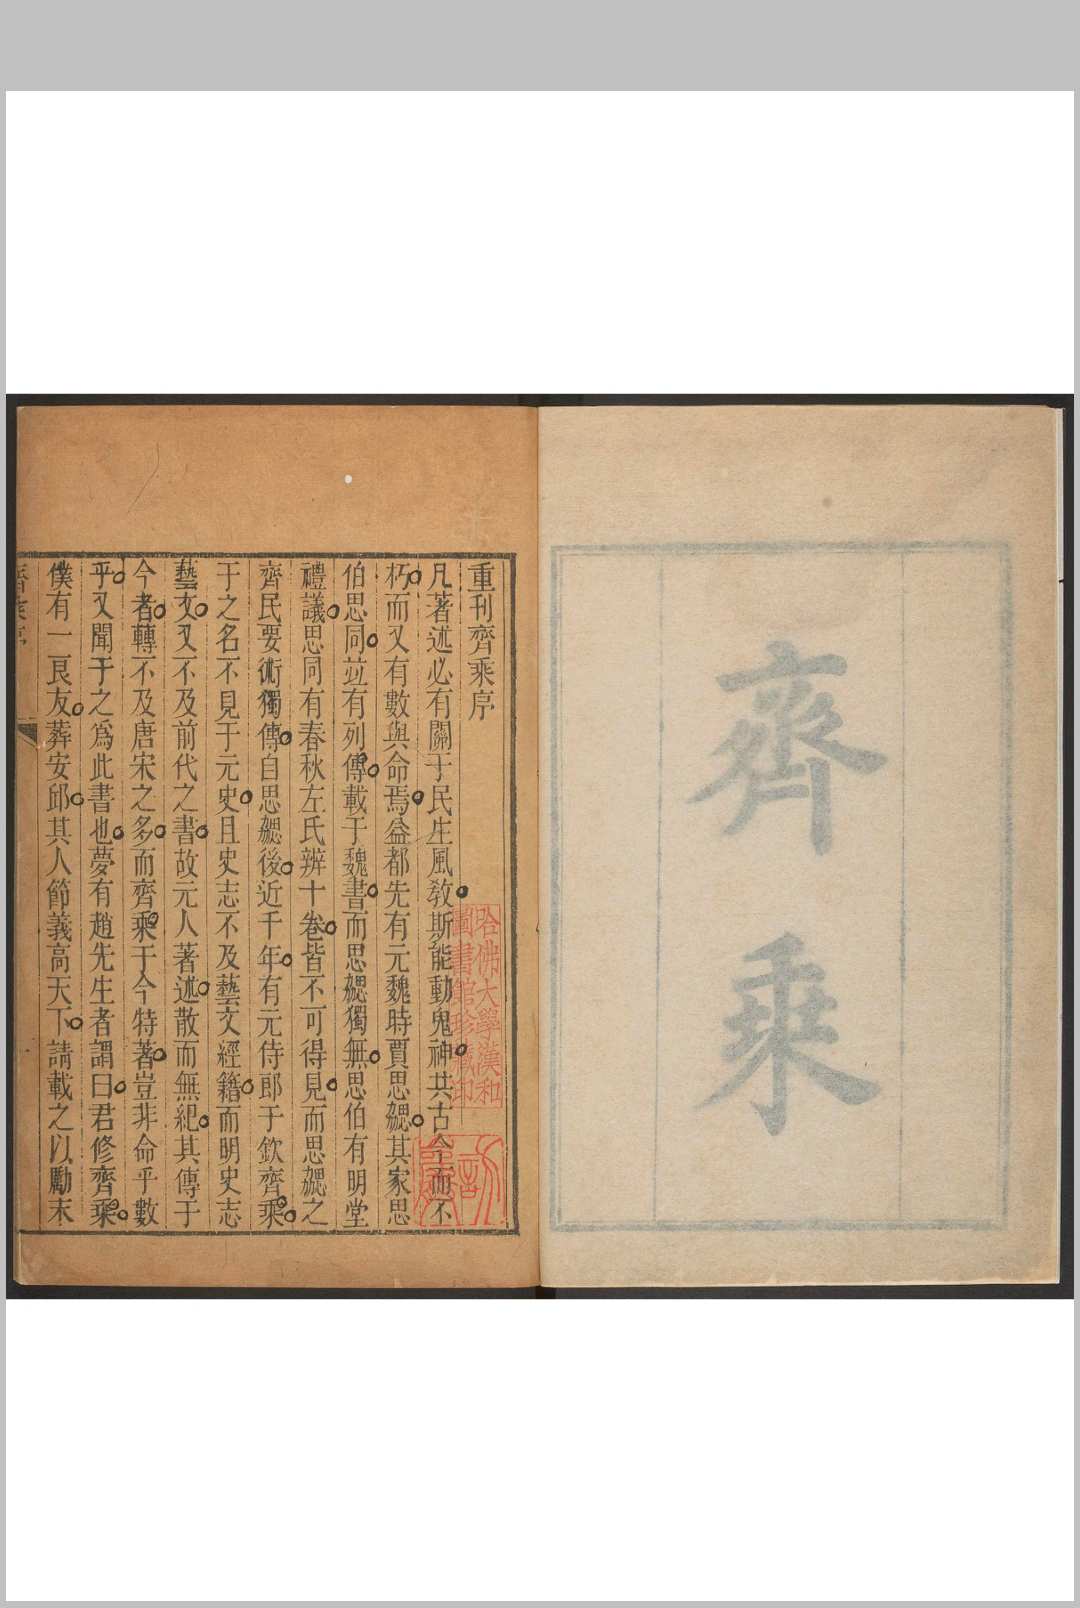 齊乘
重刊齊乘序
凡著述必有關于民生風敎斯能動鬼神共古今而不
朽而又有數與命焉益都先有元魏時賈思勰其家思
伯思同並有列傳載于魏書而思勰獨無思伯有明堂
禮議思同有春秋左氏辨十卷皆不可得見而思勰之
齊民要術獨傳自思勰後近千年有元侍郎于欽齊乘
于之名不見于元史且史志不及藝文經籍而明史志
藝文又不及前代之書故元人著述散而無紀其傳于
今者轉不及唐宋之多而齊乘于今特著豈非命乎數
乎又聞于之爲此書也夢有趙先生者謂曰君修齊乘
僕有一良友葬安邱其人節義高天下請載之以勵末
哈佛大學漢和
圖書館珍藏印